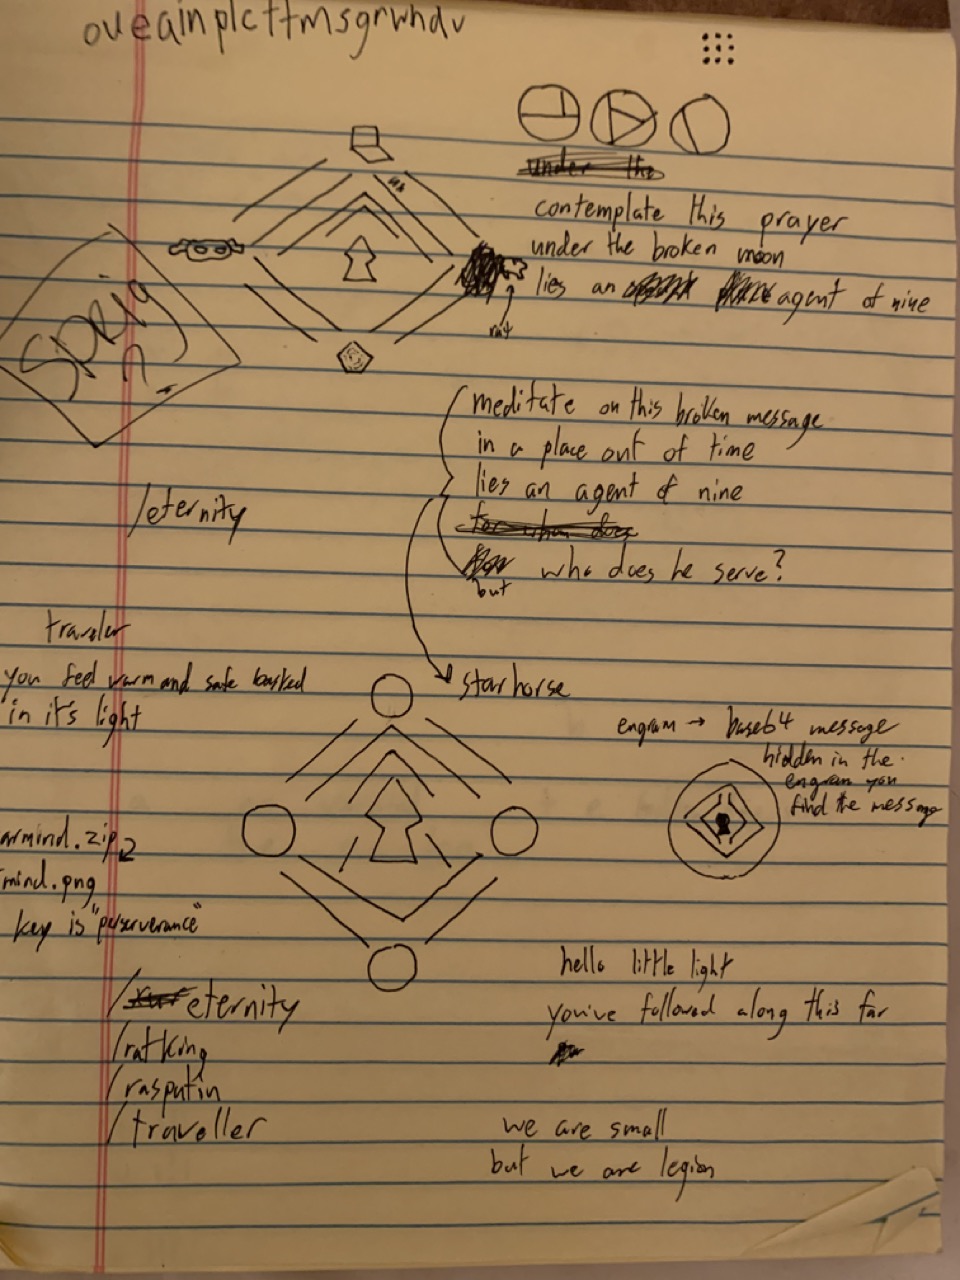 oveainplcttmsgrwhdv
under the
contemplate this prayer
under the broken moon
lies an agent of nine
meditate on this broken message
in a place out of time
lies an agent of nine
for whom does
but who does he serve?
/eternity
traveler
you feel warm and safe basked
in it's light
starhorse
engram → base64 message
hidden in the
engram you
find the message
armind.zip
mind.png
key is "perserverance"
hello little light
youive followed along this far
/eternity
/ratking
/rasputin
/traveller
we are small
but we are legion